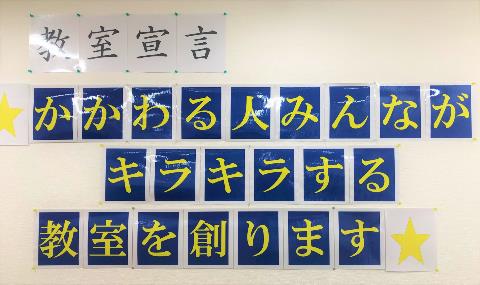 教室宣言
かかわる人みんなが
キラキラする
教室を創ります